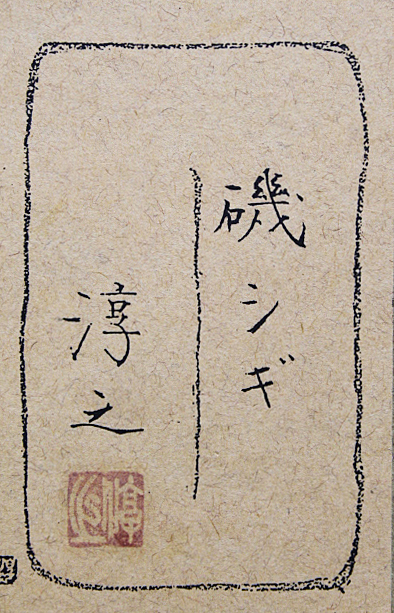 磯シギ
淳之